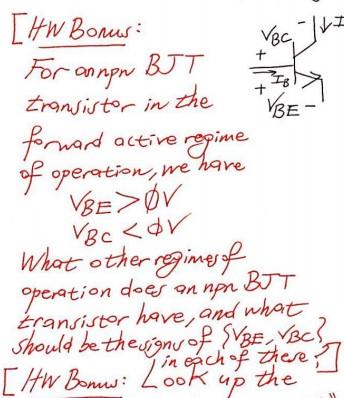 [HW Bonus:
For an npn BJT
transistor in the
forward active regime
of operation, we have
V_BE > 0V
V_BC < 0V
What other regimes of
operation does an npn BJT
transistor have, and what
should be the signs of {V_BE, V_BC}
in each of these?]
[HW Bonus: Look up the
V_BC
+ -
↓ I
I_B
+
V_BE -